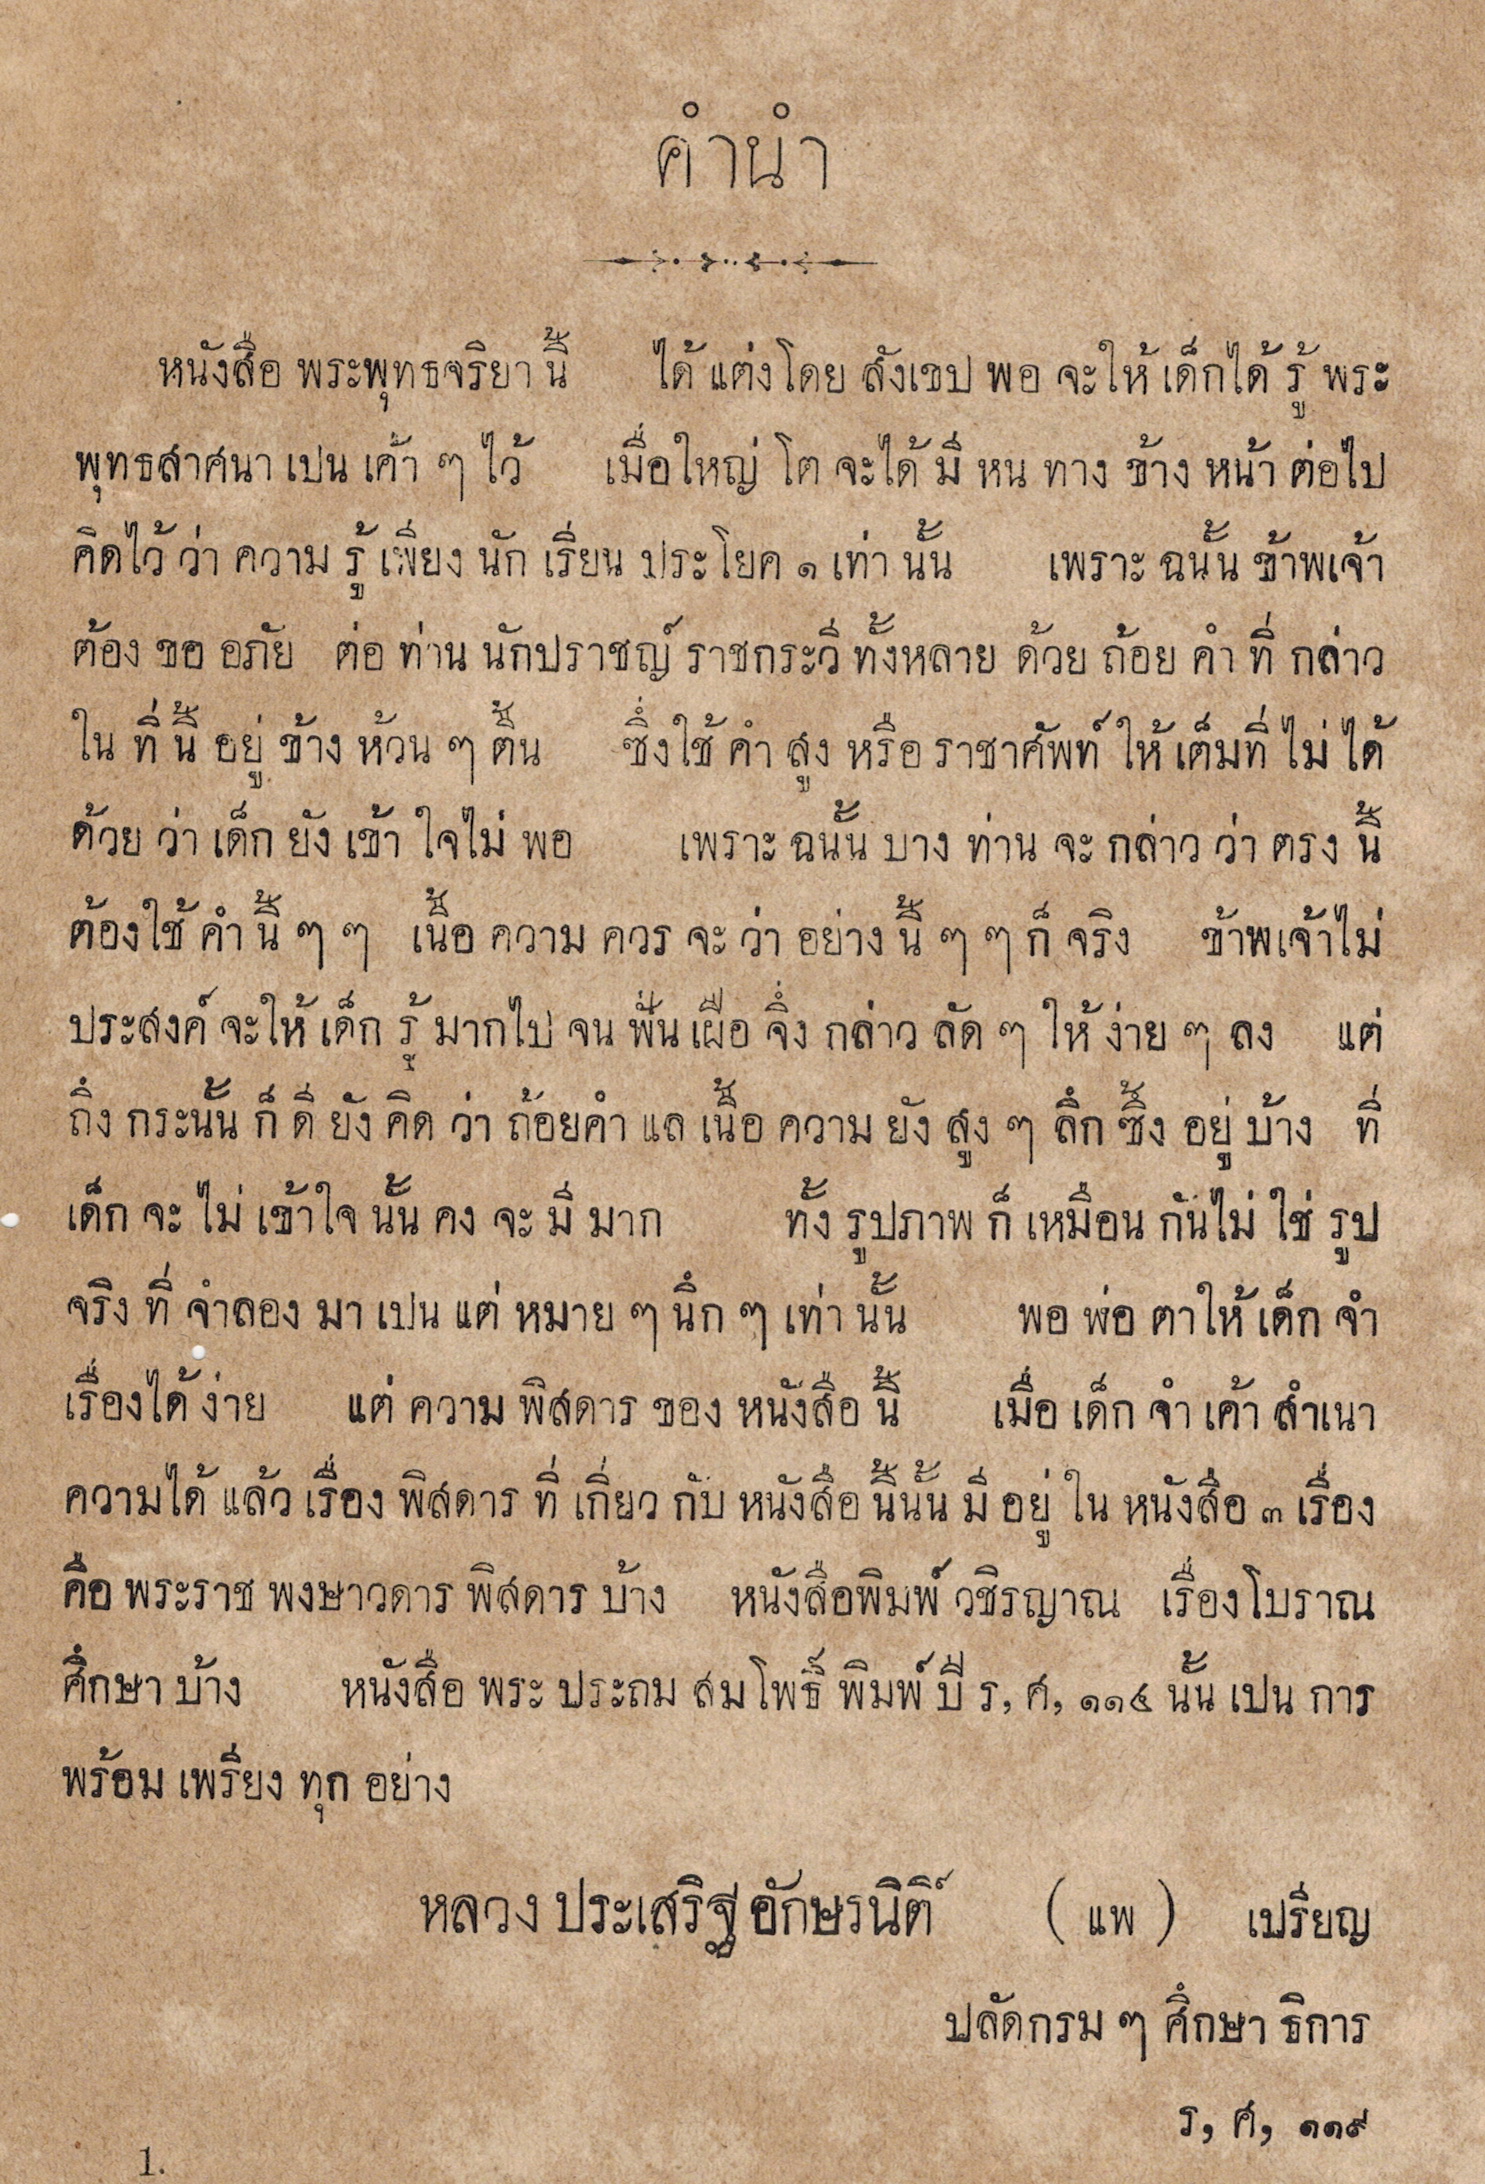 คำนำ
หนังสือ พระพุทธจริยา นี้ ได้ แต่งโดย สังเขป พอ จะให้ เด็กได้ รู้ พระ
พุทธสาศนา เปน เค้า ๆ ไว้ เมื่อใหญ่ โต จะได้ มี หน ทาง ข้าง หน้า ต่อไป
คิดไว้ ว่า ความ รู้ เพียง นัก เรียน ประโยค ๑ เท่า นั้น เพราะ ฉนั้น ข้าพเจ้า
ต้อง ขอ อภัย ต่อ ท่าน นักปราชญ์ ราชกระวี ทั้งหลาย ด้วย ถ้อย คำ ที่ กล่าว
ใน ที่ นี้ อยู่ ข้าง ห้วน ๆ ตื้น ซึ่งใช้ คำ สูง หรือ ราชาศัพท์ ให้ เต็มที่ ไม่ ได้
ด้วย ว่า เด็ก ยัง เข้า ใจไม่ พอ เพราะ ฉนั้น บาง ท่าน จะ กล่าว ว่า ตรง นี้
ต้องใช้ คำ นี้ ๆ ๆ เนื้อ ความ ควร จะ ว่า อย่าง นี้ ๆ ๆ ก็ จริง ข้าพเจ้าไม่
ประสงค์ จะให้ เด็ก รู้ มากไป จน ฟั่น เฝือ จึ่ง กล่าว ลัด ๆ ให้ ง่าย ๆ ลง แต่
ถึง กระนั้น ก็ ดี ยัง คิด ว่า ถ้อยคำ แล เนื้อ ความ ยัง สูง ๆ ลึก ซึ้ง อยู่ บ้าง ที่
เด็ก จะ ไม่ เข้าใจ นั้น คง จะ มี มาก ทั้ง รูปภาพ ก็ เหมือน กันไม่ ใช่ รูป
จริง ที่ จำลอง มา เปน แต่ หมาย ๆ นึก ๆ เท่า นั้น พอ พ่อ ตาให้ เด็ก จำ
เรื่องได้ ง่าย แต่ ความ พิสดาร ของ หนังสือ นี้ เมื่อ เด็ก จำ เค้า สำเนา
ความได้ แล้ว เรื่อง พิสดาร ที่ เกี่ยว กับ หนังสือ นี้นั้น มี อยู่ ใน หนังสือ ๓ เรื่อง
คือ พระราช พงษาวดาร พิสดาร บ้าง หนังสือพิมพ์ วชิรญาณ เรื่องโบราณ
ศึกษา บ้าง หนังสือ พระ ประถม สมโพธิ์ พิมพ์ ปี ร, ศ, ๑๑๔ นั้น เปน การ
พร้อม เพรียง ทุก อย่าง
หลวง ประเสริฐ อักษรนิติ์ ( แพ ) เปรียญ
ปลัดกรม ๆ ศึกษา ธิการ
ร, ศ, ๑๑๙
1.